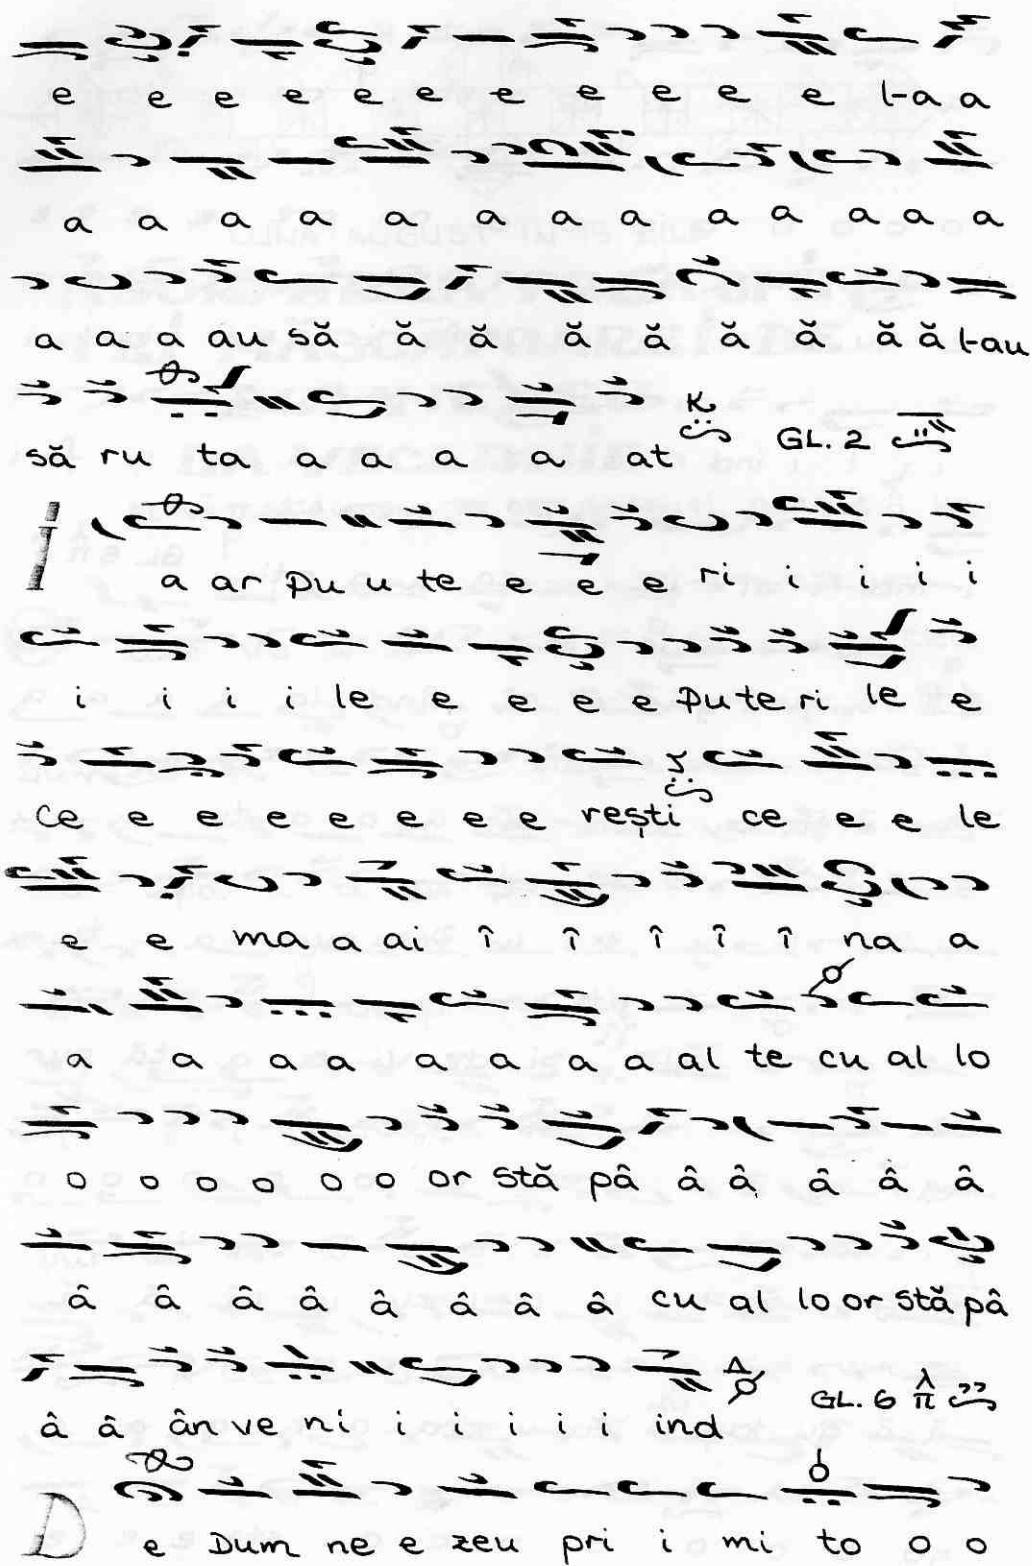 e e e e e e e e e e e l-a a
a a a a a a a a a a a a a
a a a au să ă ă ă ă ă ă ă ă l-au
să ru ta a a a a at GL. 2
I a ar Pu u te e e e ri i i i i
i i i i le e e e e Pu te ri le e
Ce e e e e e e e rești ce e e le
e e ma a ai î î î î î na a
a a a a a a a a al te cu al lo
o o o o o o or Stă pâ â â â â â
â â â â â â â â cu al lo or Stă pâ
â â ân ve ni i i i i i ind GL. 6
D e Dum ne e zeu pri i mi to o o